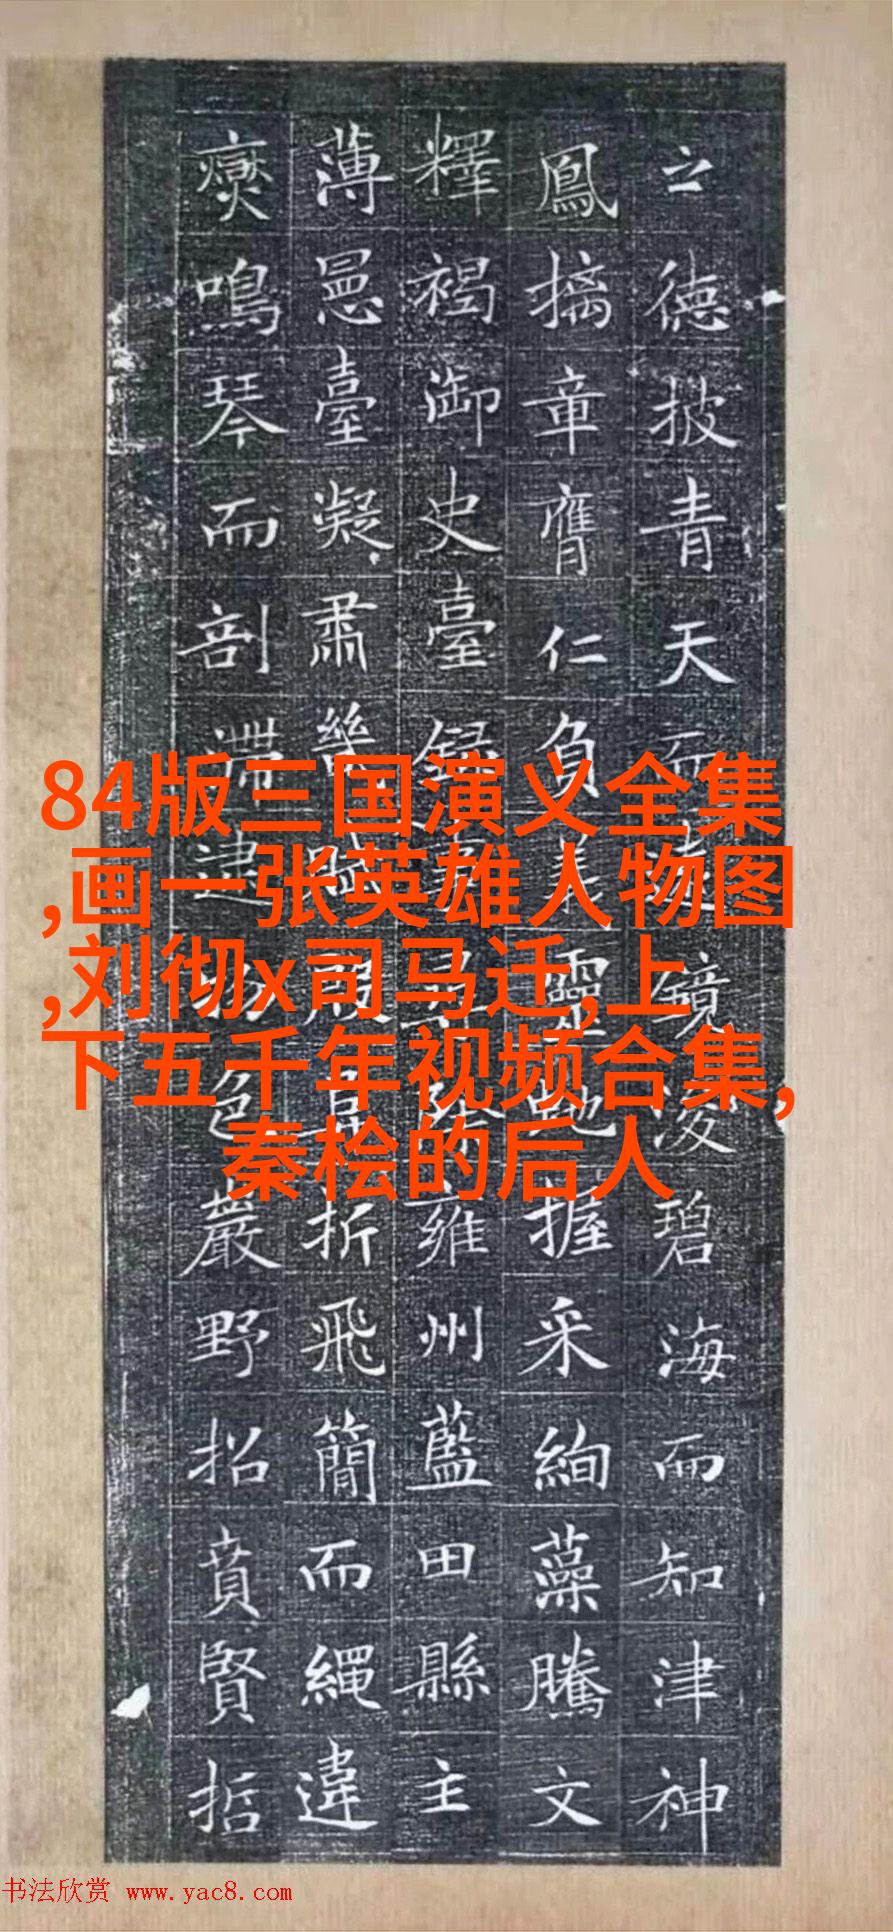 之德披青天而鏡浚碧海而知津神
鳳摛章膺仁負義靈虵握采絢藻騰文
釋褐御史臺録事尋雍州藍田縣主
薄臺凝肅折飛簡而繩違
鳴琴而剖滯逮物色巖野招賁賢哲
84版三国演义全集
,画一张英雄人物图
,刘彻x司马迁,上
下五千年视频合集,
秦桧的后人
书法欣赏 www.yac8.com